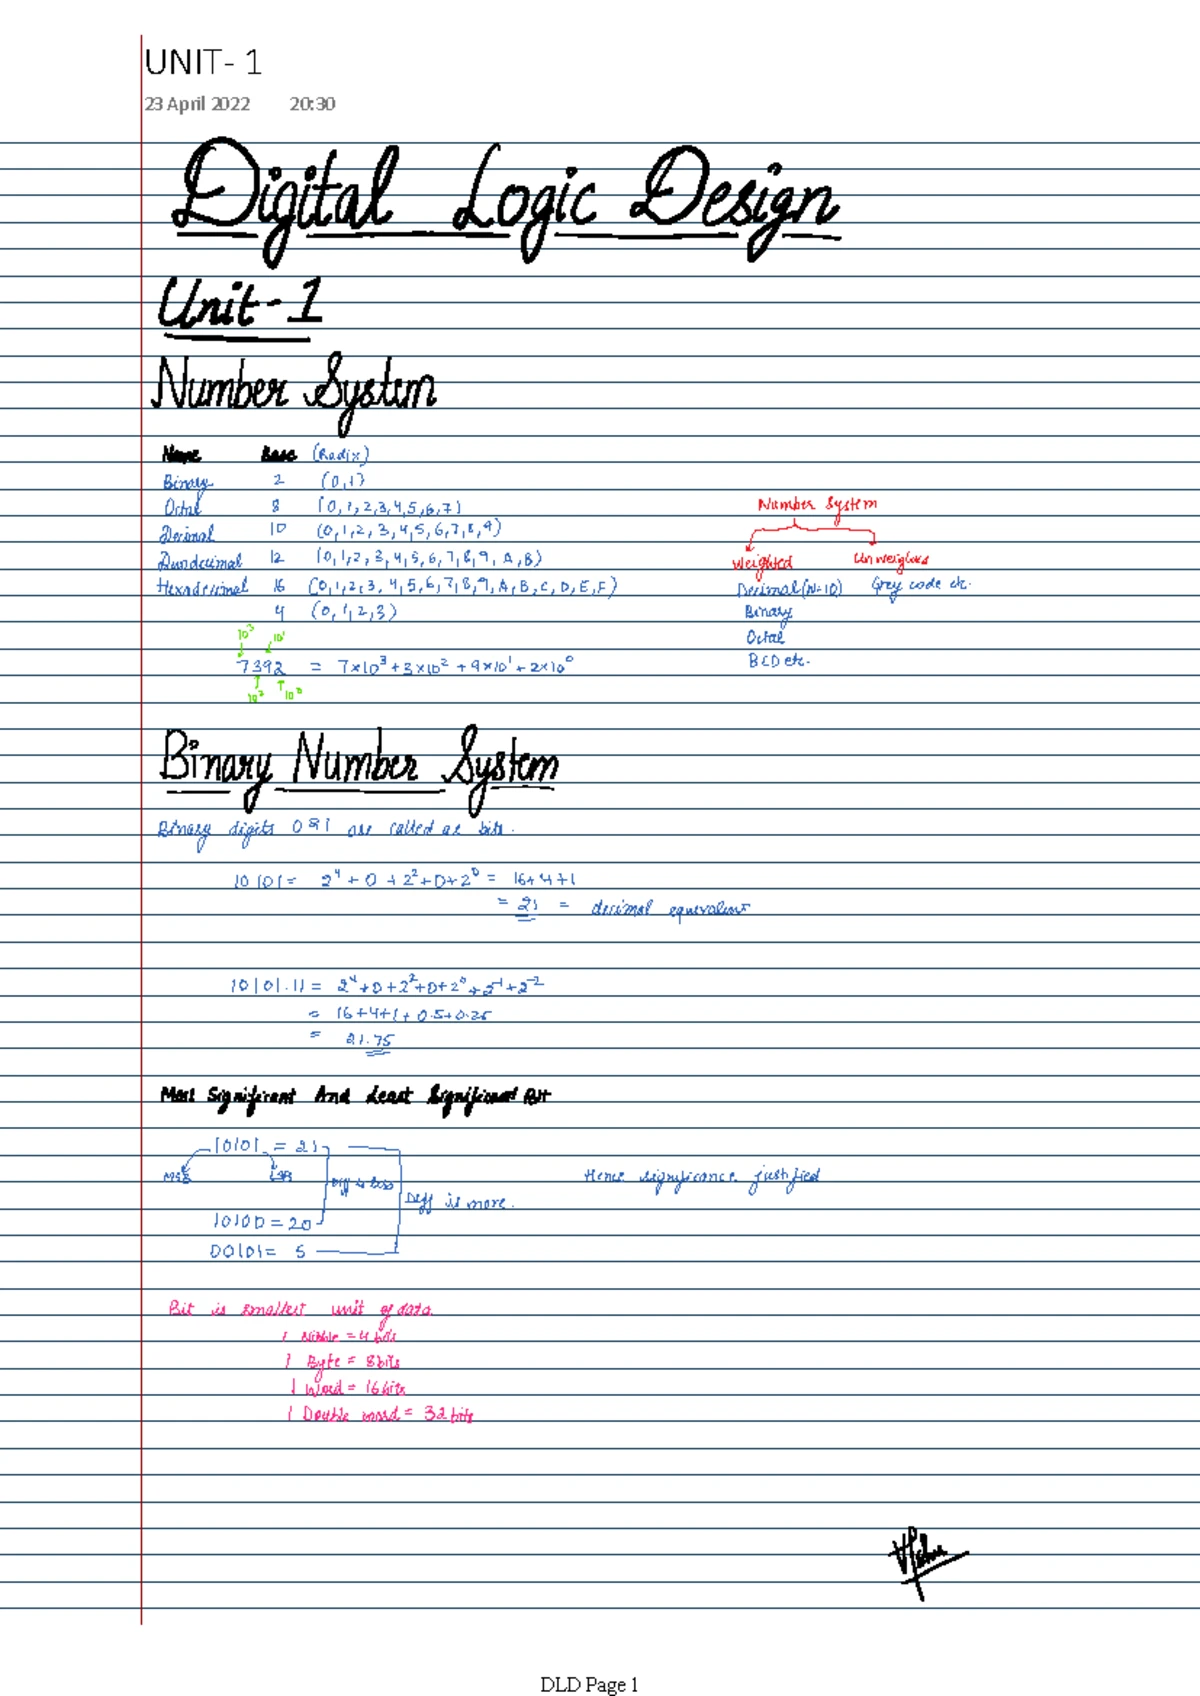 UNIT- 1
23 April 2022 20:30
Digital Logic Design
Unit-1
Number System
Name Base (Radix)
Binary 2 (0,1)
Octal 8 (0,1,2,3,4,5,6,7)
Decimal 10 (0,1,2,3,4,5,6,7,8,9)
Duodecimal 12 (0,1,2,3,4,5,6,7,8,9,A,B)
Hexadecimal 16 (0,1,2,3,4,5,6,7,8,9,A,B,C,D,E,F)
4 (0,1,2,3)
Number System
Weighted Unweighted
Decimal(N=10) Grey code etc.
Binary
Octal
BCD etc.
10³ 10¹
7392 = 7×10³+3×10²+9×10¹+2×10⁰
10² 10⁰
Binary Number System
Binary digits 0 & 1 are called as bits.
10101 = 2⁴+0+2²+0+2⁰ = 16+4+1
= 21 = decimal equivalent
10101.11 = 2⁴+0+2²+0+2⁰+2⁻¹+2⁻²
= 16+4+1+0.5+0.25
= 21.75
Most Significant And Least Significant Bit
10101 = 21
MSB LSB Diff is less Hence significance justified
Diff is more.
10100 = 20
00101 = 5
Bit is smallest unit of data
1 Nibble = 4 bits
1 Byte = 8 bits
1 Word = 16 bits
1 Double word = 32 bits
DLD Page 1